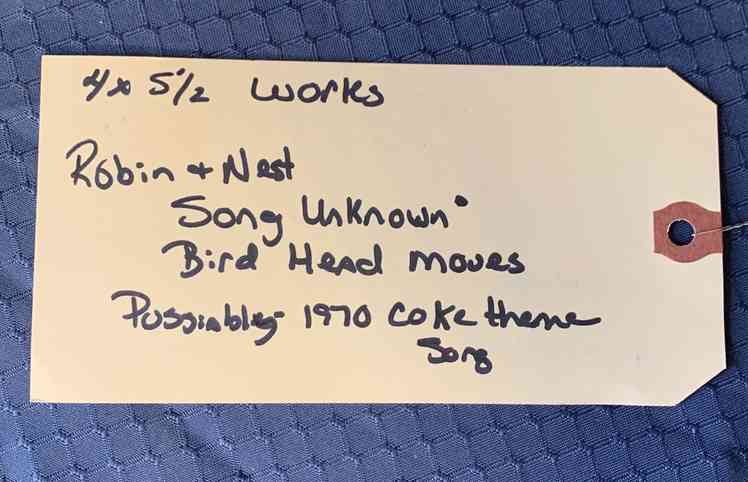 4x 5½ works
Robin + Nest
Song Unknown
Bird Head moves
Possiabley 1970 Coke theme
Song